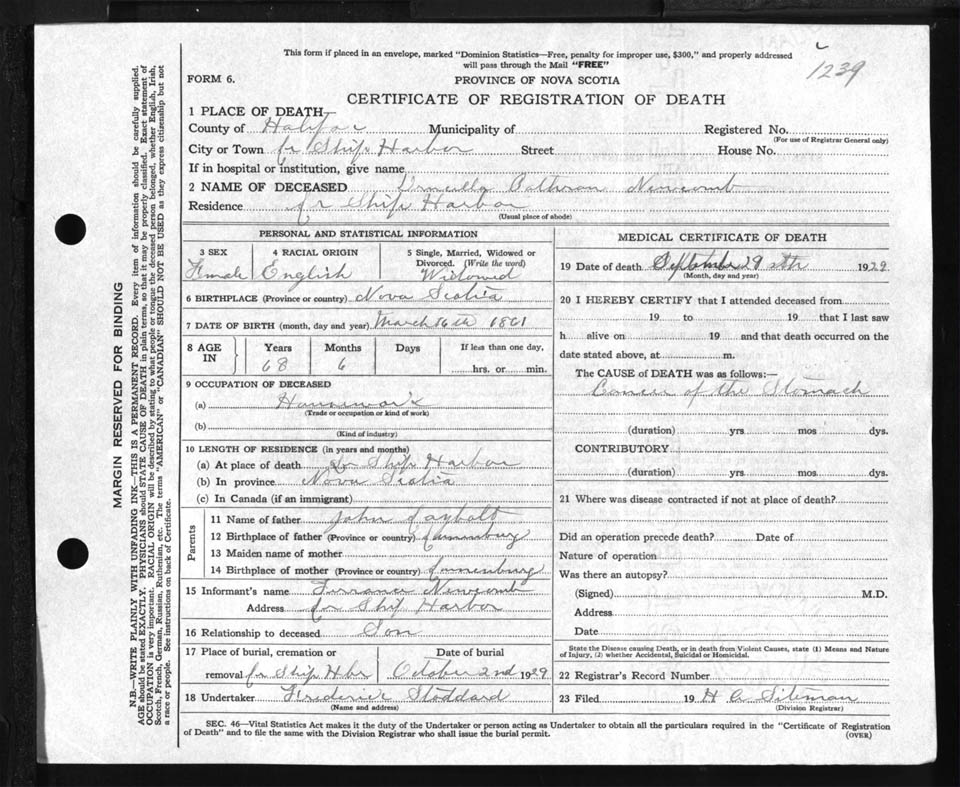 This form if placed in an envelope, marked "Dominion Statistics—Free, penalty for improper use, $300," and properly addressed
will pass through the Mail "FREE"
1239
FORM 6.
PROVINCE OF NOVA SCOTIA
CERTIFICATE OF REGISTRATION OF DEATH
1 PLACE OF DEATH—
County of Halifax Municipality of
Registered No.
(For use of Registrar General only)
City or Town Ship Harbor Street House No.
If in hospital or institution, give name
2 NAME OF DECEASED Newcomb
Residence Ship Harbor
(Usual place of abode)
PERSONAL AND STATISTICAL INFORMATION
3 SEX
Female
4 RACIAL ORIGIN
English
5 Single, Married, Widowed or
Divorced. (Write the word)
Widowed
6 BIRTHPLACE (Province or country) Nova Scotia
7 DATE OF BIRTH (month, day and year) March 16th 1861
8 AGE IN
Years Months Days If less than one day,
68 6 hrs. or min.
9 OCCUPATION OF DECEASED
(a) Housework
(Trade or occupation or kind of work)
(b)
(Kind of industry)
10 LENGTH OF RESIDENCE (in years and months)
(a) At place of death Ship Harbor
(b) In province Nova Scotia
(c) In Canada (if an immigrant)
Parents
11 Name of father John
12 Birthplace of father (Province or country) Lunenburg
13 Maiden name of mother
14 Birthplace of mother (Province or country) Lunenburg
15 Informant's name Newcomb
Address Ship Harbor
16 Relationship to deceased Son
17 Place of burial, cremation or Date of burial
removal Ship Hbr October 2nd 1929
18 Undertaker Frederick Stoddard
(Name and address)
MEDICAL CERTIFICATE OF DEATH
19 Date of death September 29 1929
(Month, day and year)
20 I HEREBY CERTIFY that I attended deceased from
19 to 19 that I last saw
h alive on 19 and that death occurred on the
date stated above, at m.
The CAUSE of DEATH was as follows:—
Cancer of the Stomach
(duration) yrs mos dys.
CONTRIBUTORY
(duration) yrs. mos dys.
21 Where was disease contracted if not at place of death?
Did an operation precede death? Date of
Nature of operation
Was there an autopsy?
(Signed) M.D.
Address
Date
State the Disease causing Death, or in death from Violent Causes, state (1) Means and Nature
of Injury, (2) whether Accidental, Suicidal or Homicidal.
22 Registrar's Record Number
23 Filed 19
(Division Registrar)
SEC. 46—Vital Statistics Act makes it the duty of the Undertaker or person acting as Undertaker to obtain all the particulars required in the "Certificate of Registration
of Death" and to file the same with the Division Registrar who shall issue the burial permit.
(OVER)
MARGIN RESERVED FOR BINDING
N.B.—WRITE PLAINLY WITH UNFADING INK—THIS IS A PERMANENT RECORD. Every item of information should be carefully supplied.
AGE should be stated EXACTLY. PHYSICIANS should STATE CAUSE OF DEATH in plain terms, so that it may be properly classified. Exact statement of
OCCUPATION is very important. RACIAL ORIGIN will be described by stating to what people or tongue the deceased person belonged, whether English, Irish,
Scotch, French, German, Russian, Ruthenian, etc. The terms "AMERICAN" or "CANADIAN" SHOULD NOT BE USED as they express citizenship but not
a race or people. See instructions on back of Certificate.